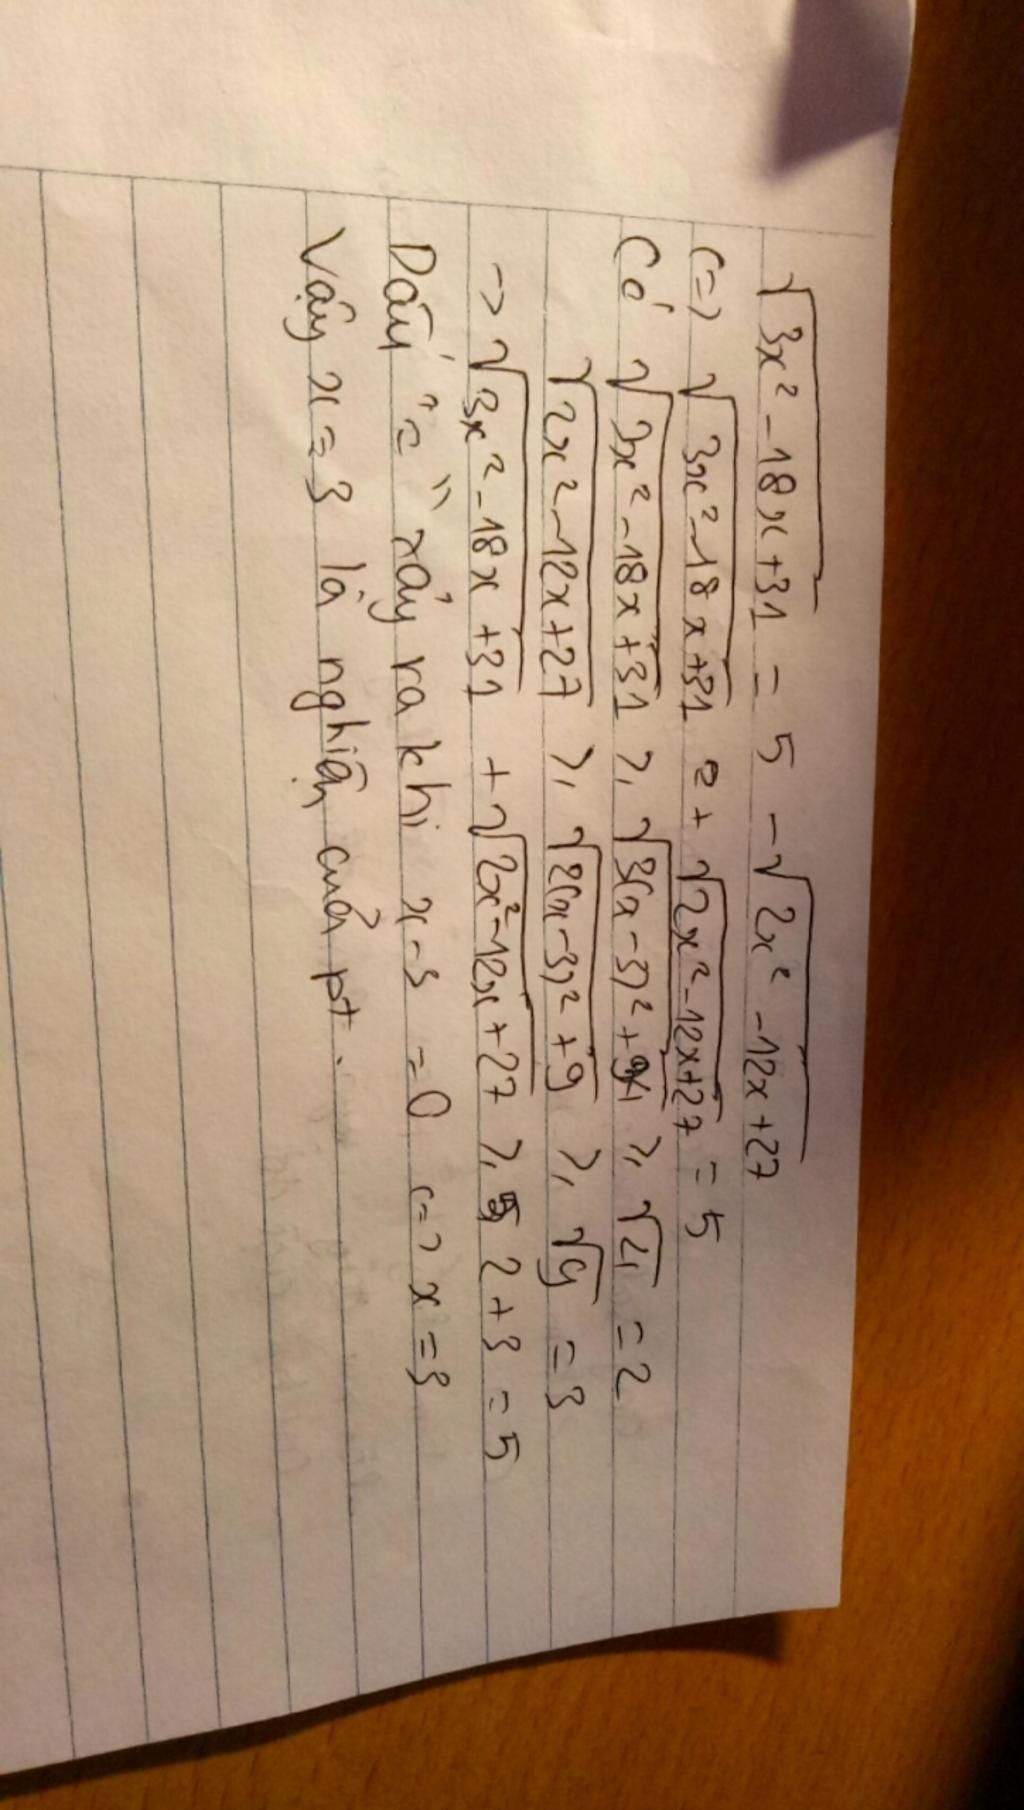 √(3x² - 18x + 31) = 5 - √(2x² - 12x + 27)
(=) √(3x² - 18x + 31) = + √(2x² - 12x + 27) = 5
Có √(3x² - 18x + 31) ≥ √(3(x - 3)² + 4) ≥ √4 = 2
√(2x² - 12x + 27) ≥ √(2(x - 3)² + 9) ≥ √9 = 3
-> √(3x² - 18x + 31) + √(2x² - 12x + 27) ≥ 2 + 3 = 5
Dấu "=" xảy ra khi x - 3 = 0 (=) x = 3
Vậy x = 3 là nghiệm của pt.